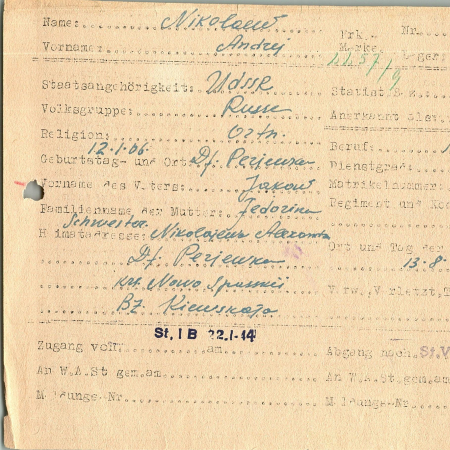 Name: Nikolaew
Vorname: Andrej
Erk.-Marke 
Nr.
Lager:
Staatsangehörigkeit: UdSSR
Statist.
Volksgruppe: Russe
Anerkannt als:
Religion: Orth.
Beruf:
12.1.06.
Geburtstag- und Ort: Df. Perjewka
Dienstgrad:
Vorname des Vaters: Jakow
Matrikelnummer:
Familienname der Mutter: Fedorina
Regiment und
Schwester
Heimatadresse: Nikolajewa
Ort und Tag der
Df. Perjewka
13.8.
Krs. Nowo
Verw., Verletzt,
Bz. Kiewskaja
St. I B 22.1.44
Zugang von am
Abgang nach St. V
An W.A.St gem.am
An W.A.St gem.am
Meldungs-Nr
Meldungs-Nr